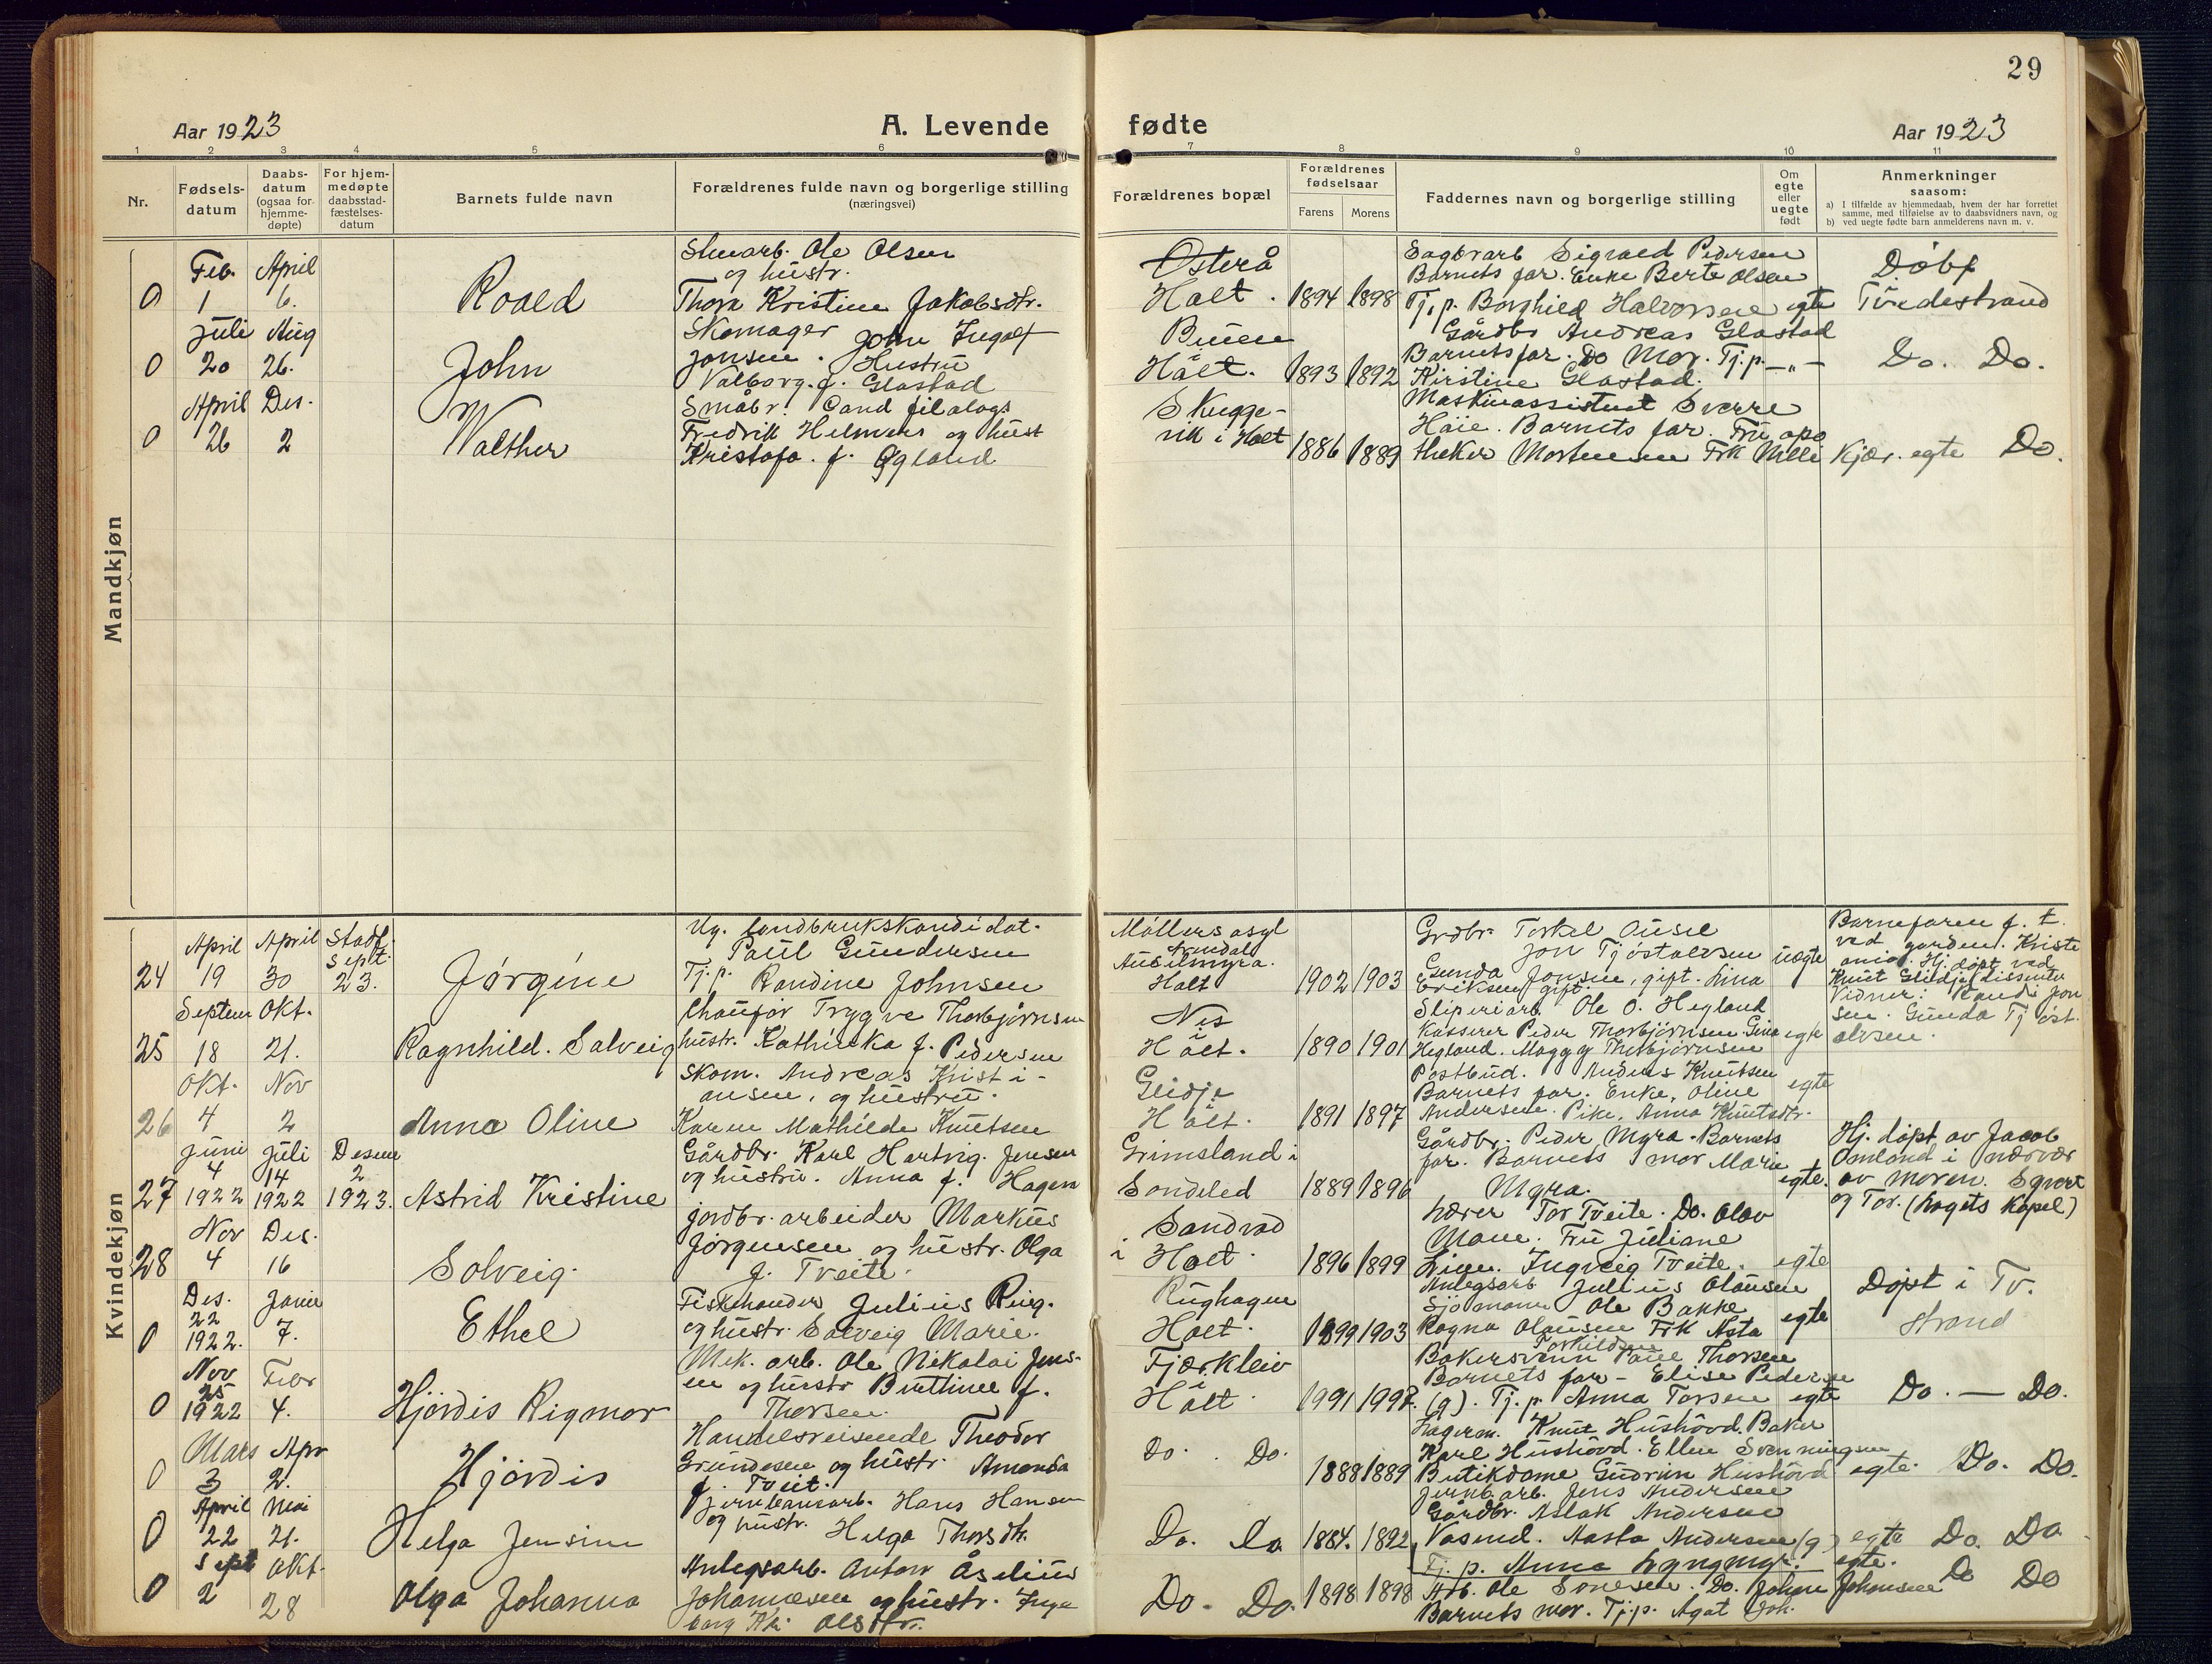 29
Aar 1923
A. Levende fødte
Aar 1923
1 2 3 4 5 6 7 8 9 10 11
Nr.
Fødsels-
datum
Daabs-
datum
(ogsaa for
hjemme-
døpte)
For hjem-
medøpte
daabsstad-
fæstelses-
datum
Barnets fulde navn
Forældrenes fulde navn og borgerlige stilling
(næringsvei)
Forældrenes bopæl
Forældrenes
fødselsaar
Farens
Morens
Faddernes navn og borgerlige stilling
Om
egte
eller
uegte
født
Anmerkninger
saasom:
a) I tilfælde av hjemmedaab, hvem der har forrettet
samme, med tilføielse av to daabsvidners navn, og
b) ved uegte fødte barn anmelderens navn m. v.
Mandkjøn
0 Feb. 1 April 6.
Roald
Ole Olsen
og hustr.
Thora Kristine Jakobsdtr.
Østerå
Holt. 1894 1898
Sagbrarb Sigvald Pedersen
Barnets far. Enke Berte Olsen
Tj. p. Borghild Halvorsen egte
Døbt
Tvedestrand
0 Juli 20 Aug 26.
John
Skomager John Ingolf
Jonsen. Hustru
Valborg f. Glastad
Holt. 1893 1892
Gårdbr Andreas Glastad
Barnets far. Do Mor. Tj. p. — „ —
Kirstine Glastad.
Do. Do.
0 April 26 Des. 2
Walther
Småbr. Cand filologi
Fredrik Helmers og hust
Kristofa. f. Egland
Skugge-
vik i Holt 1886 1889
Maskinassistent Sverre
Håie. Barnets far. Fru apo
theker Mortensen Frk Nilli Kjær. egte
Do.
Kvindekjøn
24 April 19 April 30 Stadf. Sept. 23.
Jørgine
Ug. landbrukskandidat.
Paul Gundersen
Tj. p. Randine Johnsen
Møllers asyl
Arendal
Holt 1902 1903
Grdbr. Torkel
Jon Tjøstolvsen
Gunda Jonsen, gift. Lina
Eriksen gift.
uegte
Barnefaren f. t.
ved garden. Kriste
Hj. døpt ved
Knut Glidje, dissenter
Vidner: Randi Jon
sen. Gunda Tjøst
olvsen.
25 Septem 18 Okt. 21.
Ragnhild. Salveig
Chauffør Tryggve Thorbjørnsen
hustr. Kathinka f. Pedersen
Nes
i
Holt. 1890 1901
Sliperiarb. Ole O. Hegland
Kasserer Peder Thorbjørnsen. Gina
Hegland. Maggy Thorbjørnsen
egte
26 Okt. 4 Nov 2
Anna Oline
Skom. Andreas Kristi-
ansen, og hustru.
Karen Mathilde Knutsen
Glidje
Holt. 1891 1897
Postbud. Anders Knutsen
Barnets far. Enke, Oline
Andersen. Pike, Anna Knutsdtr.
egte
27 Juni 4 1922 Juli 14 1922 Desem 2 1923.
Astrid Kristine
Gårdbr. Karl Hartvig. Jensen
og hustru. Anna f. Hagen
Grimsland i
Søndeled 1889 1896
Gårdbr. Peder Myra. Barnets
far. Barnets mor Marie
Myra.
egte.
Hj. døpt av Jacob
Omland i nærvær
av moren. Sgvart
og Tor. (Lagets Kapel)
28 Nov 4 Des. 16
Solveig.
Jordbr. arbeider Markus
Jørgensen og hustr. Olga
f. Tveite.
Sandvad
i Holt. 1896 1899
Lærer Tor Tveite. Do. Olav
Moen. Fru Juliane
Lien. Ingveig Tveite.
egte
0 Des. 22 1922. Janu 7.
Ethel
Fiskehandler Julius Ring.
og hustr. Solveig Marie.
Rughagen
Holt. 1899 1903
Anlegsarb Julius Olausen
Sjømann Ole Bakke
Ragna Olausen Frk Asta
Torkildsen
egte
Døpt i Tv.
strand
0 Nov 25 1922 Febr 4.
Hjördis Rigmor
Mek. arb. Ole Nikolai Jens-
en og hustr Birtline f.
Thorsen.
Fjærkleiv
i
Holt. 1991 1997.
Bakersvenn Paul Thorsen
Barnets far - Elise Pedersen
(g). Tj. p. Anna Torsen egte
Do. — Do.
0 Mars 3 Apr 2.
Hjördis
Handelsreisende Theodor
Grundesen og hustr. Amanda
f. Tveit.
Do. Do. 1888 1889
Lagerm. Knut Hushovd. Baker
Karl Hushovd. Ellen Svenningsen
Butikdame Gudrun Hushovd egte.
Do. Do.
0 April 22 Mai 21.
Helga Jensine
Jernbanearb. Hans Hansen
og hustr. Helga Thorsdtr.
Do. Do 1884. 1892
Jernb. arb. Jens Andersen
Gårdbr. Aslak Andersen
Aasta Andersen (g) egte
Tj. p. Anna Lyngmyr. egte.
Do. Do
0 Sept 2 Okt. 28
Olga Johanna
Anlegsarb. Anton Åselius
Johannesen og hustr. Inge
borg Kri Olsdtr.
Do. Do. 1898 1898
Arb. Ole Sonesen. Do. Johan Johansen
Barnets mor. Tj.p. Agat Joh.
Do Do